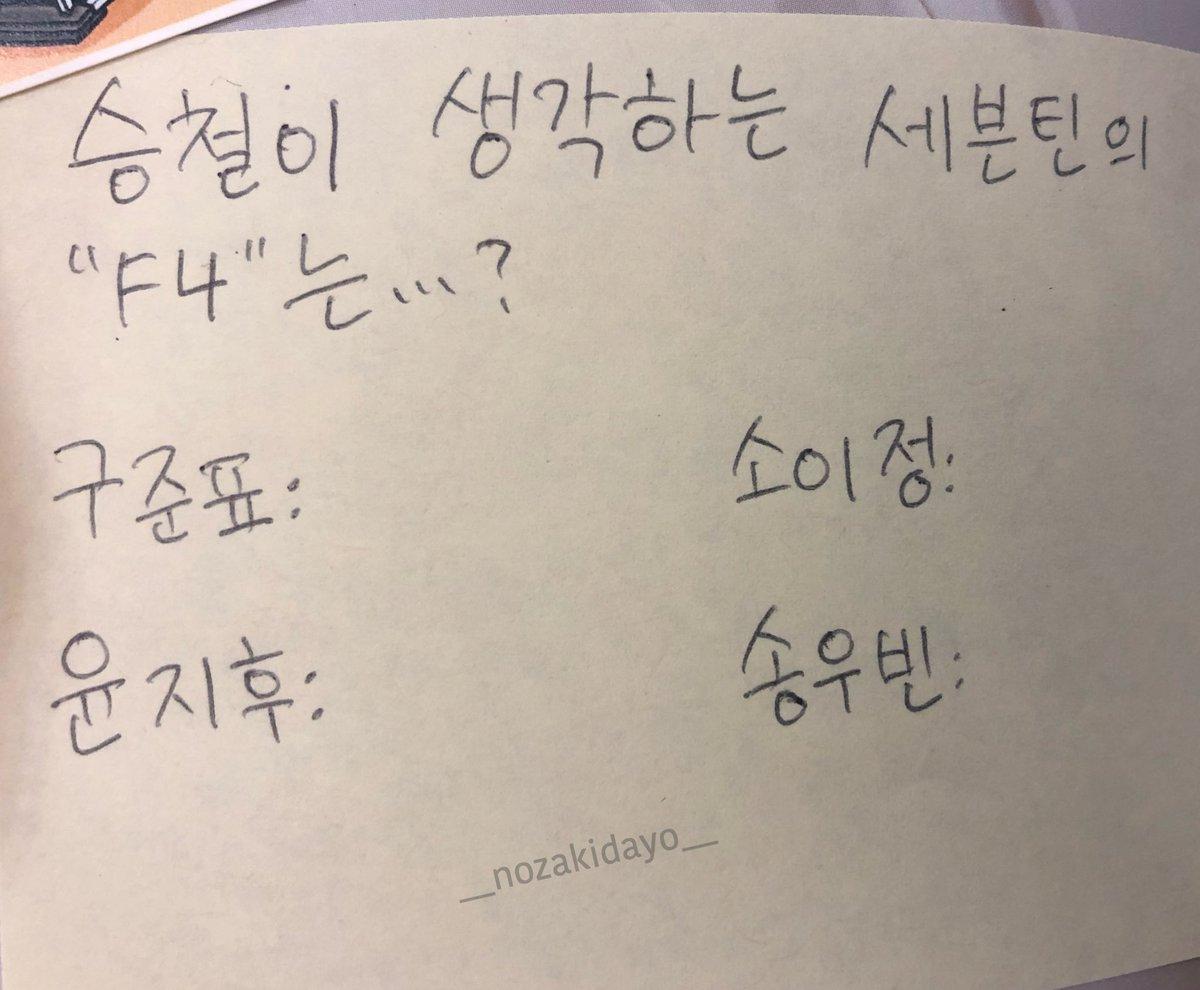 승철이 생각하는 세븐틴의
"F4"는...?
구준표: 소이정:
윤지후: 송우빈:
__nozakidayo__